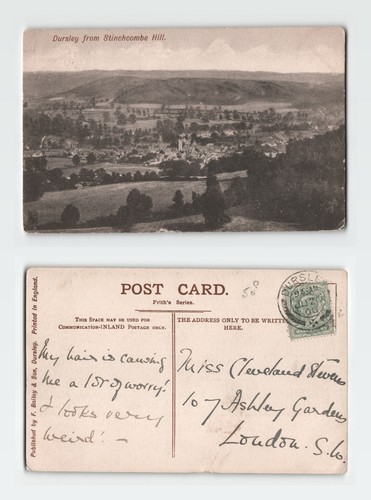 Dursley from Stinchcombe Hill.
POST CARD.
Frith's Series.
58
THIS SPACE MAY BE USED FOR
COMMUNICATION-INLAND POSTAGE ONLY.
THE ADDRESS ONLY TO BE WRITTEN
HERE.
Published by F. Bailey & Son, Dursley. Printed in England.
DURSLEY
My hair is causing
me a lot of worry!
& looks very
weird! —
Miss Cleveland Stevens
107 Ashley Gardens
London. S.W.